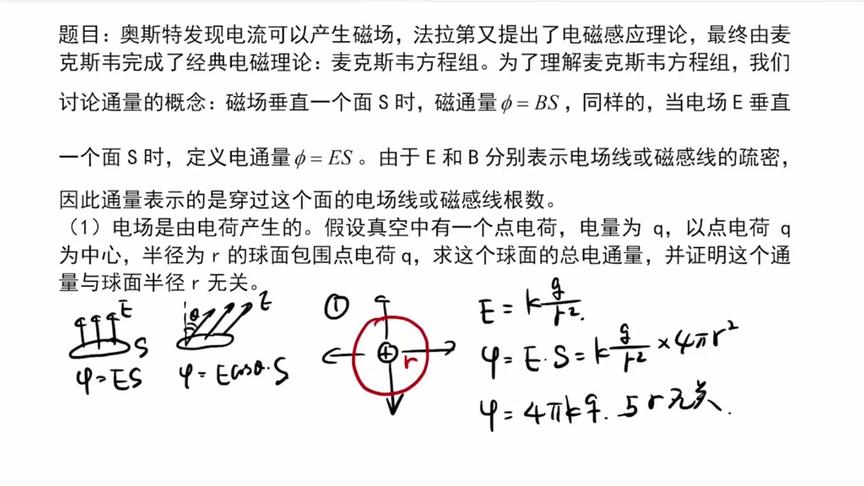 题目：奥斯特发现电流可以产生磁场，法拉第又提出了电磁感应理论，最终由麦
克斯韦完成了经典电磁理论：麦克斯韦方程组。为了理解麦克斯韦方程组，我们
讨论通量的概念：磁场垂直一个面 S 时，磁通量 ϕ = BS，同样的，当电场 E 垂直
一个面 S 时，定义电通量 ϕ = ES。由于 E 和 B 分别表示电场线或磁感线的疏密，
因此通量表示的是穿过这个面的电场线或磁感线根数。
（1）电场是由电荷产生的。假设真空中有一个点电荷，电量为 q，以点电荷 q
为中心，半径为 r 的球面包围点电荷 q，求这个球面的总电通量，并证明这个通
量与球面半径 r 无关。
E
S
φ=ES
θ
E
φ=Ecosθ·S
①
+
r
E=k q/r².
φ=E·S=k q/r² ×4πr²
φ=4πkq. 与r无关.